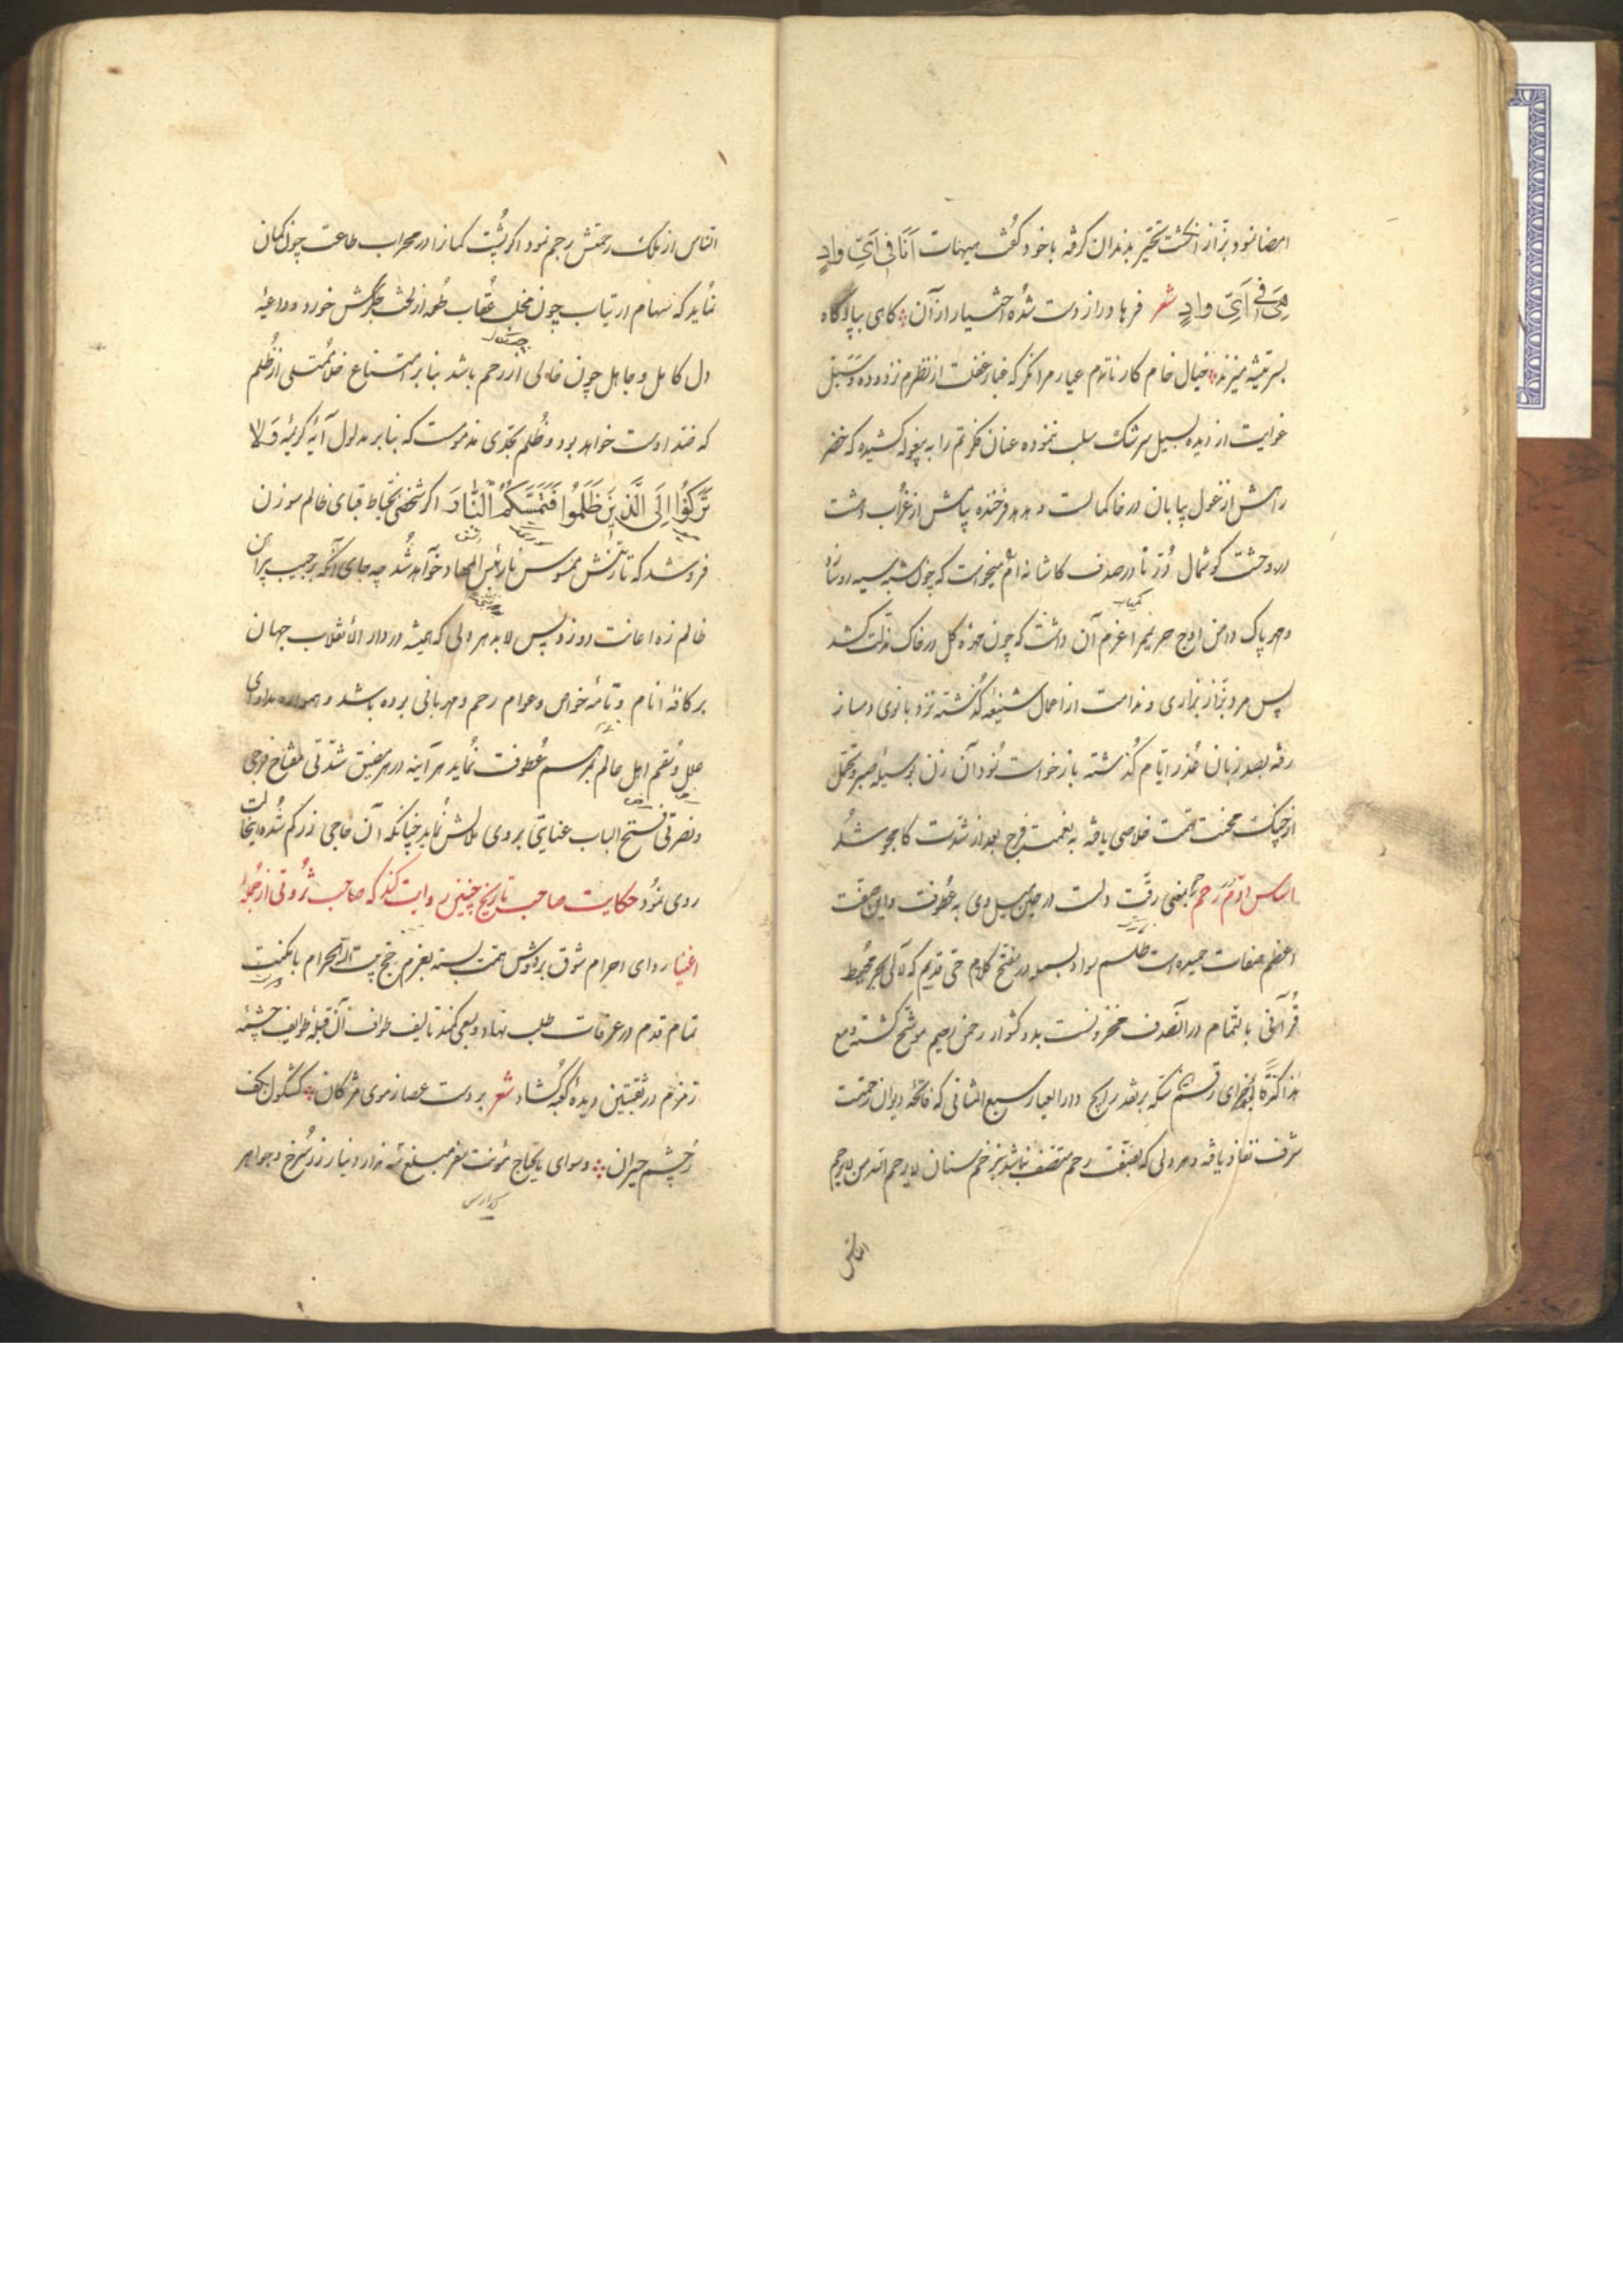 امضا نمود بزاز انگشت تحیر بدندان گرفته باخود گفت هیهات اَنَا فی اَیِّ وادٍ
هِیَ فی اَیِّ وادٍ شعر فرهاد راز دست شده اختیار از آن کاهی بپا و گاه
بسر تیشه میزند خیال خام کار ناتمام عیار مرا نگر که غبار غفلت از نظرم نزدوده و سبل
غوایت از دیده بسیل سرشک سلب ننموده عنان فکرتم را به بیغوله کشیده که خضر
راهش از غول بیابان در خاکمالست و هدهد فرخنده پیامش از غراب دشت
در وحشت گوشمال دُر
و مهر پاک دامن اوج حریمم را عزم آن داشت که چون خوزه گل در خاک مذلت کشد
پس مرد بزاز بزاری و ندامت از اعمال شنیعه گذشته نزد بانوی دمساز
رفته بصد زبان عُذر ایام گذشته باز خواست نمود آن زن بوسیله صبر و تحمل
از چنگ محنت تهمت خلاصی یافته به نعمت فرج بعد از شدت کامجو شد
اساس دوّم رحم بمعنی رقت دلست در حین میل وی به عطوفت و این صفت
اعظم صفات حمیده است طلسم سواد بسمله در مفتتح کلام حی قدیم که لآلی بحر محیط
قرآنی بالتمام در آنصدف مخزونست بدو گوار رحمن رحیم موشح گشته و مع
هذا سکه بر نقد رایج دار العیار سبع المثانی که فاتحه دیوان رحمتست
شرف نفاذ یافته و هر دلی که بصفت رحم متصف نباشد بزخم سنان لا یرحم الله من لا یرحم
الناس
الناس از ملک رحمتش رجم نمود اگر پُشت کمانرا در محراب طاعت چون کمان
نماید که سهام ارتیاب چون مخلب عُقاب طُعمه از لخت جگرش خورد و داعیهٔ
دل کامل و جاهل چون خالی از رحم باشد بنا بر امتناع خلأ ممتلی از ظلم
که ضد اوست خواهد بود و ظُلم بحدی مذمومست که بنا بر مدلول آیهٔ کریمهٔ وَلا
تَرْکَنُوا اِلَی الَّذینَ ظَلَمُوا فَتَمَسَّکُمُ النّار اگر شخصی بخیاط قبای ظالم سوزن
فروشد که تا رتنش ممسوس نار بئس المهاد خواهد شد چه جای آنکه بر جیب پیراهن
ظالم زه اعانت دوزد پس لابد هر دلی که همیشه در دار الانقلاب جهان
بر کافهٔ انام و تامهٔ خواص و عوام رحم و مهربانی برده باشد و همواره مداوای
علل و سُقم اهل عالم بمرهم عُطوفت نماید هر آینه در هر مضیق شدتی مفتاح فرجی
و نصرتی مفتح الباب عنایتی بروی ملالش نماید چنانکه آن حاجی زر گم شده را نجات
روی نمود حکایت صاحب تاریخ چنین روایت کند که صاحب ثروتی از جمله
اغنیا ردای احرام شوق بر دوش همت بسته بعزم حج بیت الله الحرام با مکنت
تمام قدم در عرفات طلب نهاد و بسعی کمند تا لیف طواف آن قبلهٔ طوایف چشمهٔ
زمزم در ثقبتین دیده کعبه گشاد شعر بر دست عصا ز موی مژگان کشکول بکف
ز چشم حیران و سوای مایحتاج مؤنت سفر مبلغ سه هزار دینار زر سرخ و جواهر